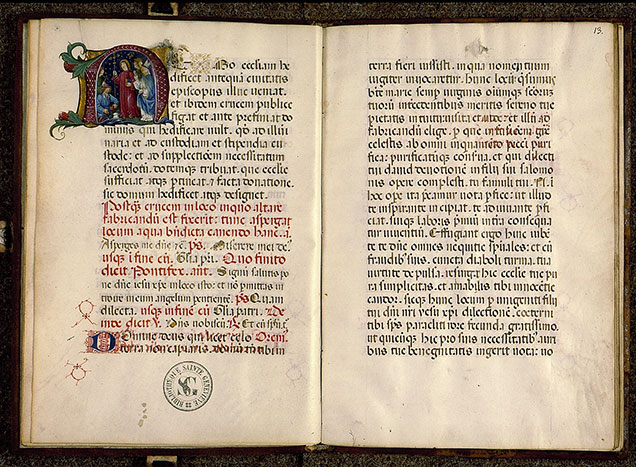 Nemo ecclesiam he
dificet antequam civitatis
episcopus illuc veniat.
et ibidem crucem publice
figat et ante prefiniat do
minus qui hedificare vult. qd ad
naria et ad custodiam et stipendia cu
stode: et ad supplectiom necessitatum
sacerdotū. dotemqz tribuat. que ecclīe
sufficiat atqz ptineat. & facta donatione.
sic domum hedificet atqz designet.
Postqz crucem in loco in quo altare
fabricandū est fixerit: tunc aspergat
locum aqua būdicta canendo hanc. ā.
Asperges me dñe zc. ps. Miserere mei de'.
usqz ī fine cū. Gl'a pri. Quo finito
dicit Pontifex. ant. Signū salutis po
ne dñe iesu xpe in loco isto: et nō pmittas in
troire
angelum percutientē. ps Quam
dilecta. usqz infine cū Gl'a patri. De
inde dicit ℣. Dns vobiscū. ℟. Et cū spū t.
Oremus
Omīps deus qui licet celo
terra non capiaris. domū tn tibi in
BIBLIOTHEQUE SAINTE GENEVIEVE
SG
13.
terra fieri iussisti. in qua nomen tuum
iugiter invocaretur. hunc locū qs̄umus
bte marie semp virginis oīumqz scōrum
tuorū intercedentibus meritis sereno tue
pietatis intuitu
ad
fabricandū elige. p que infusionem grē
celestis ab omni inquinamēto
puri
fica: purificatūqz conserva. et qui dilecti
tui david devotionē in filii sui salomo
nis opere complesti.
famuli tui. N. ī
hoc ope ita
vota pfice: ut
te inspirante incipiat. te adiuvante pfi
ciat. sicqz laboris
consequa
tur
Effugiant ergo hinc iube
te te dñe omnes nequitie spūales: et cū
fraudib' suis. cuncta diaboli turma. tua
virtute repulsa. resurgat hic ecclīe tue pu
ra simplicitas. et amabilis tibi innocētie
candor. sicqz hunc locum p unigeniti filii
tui dñi nri iesu xpi dilectionē. coeterni
tibi sps paracliti rore fecunda gratissimo.
ut quicunqz hic pro suis necessitatib' auri
bus tue benegnitatis ingerit vota: vo